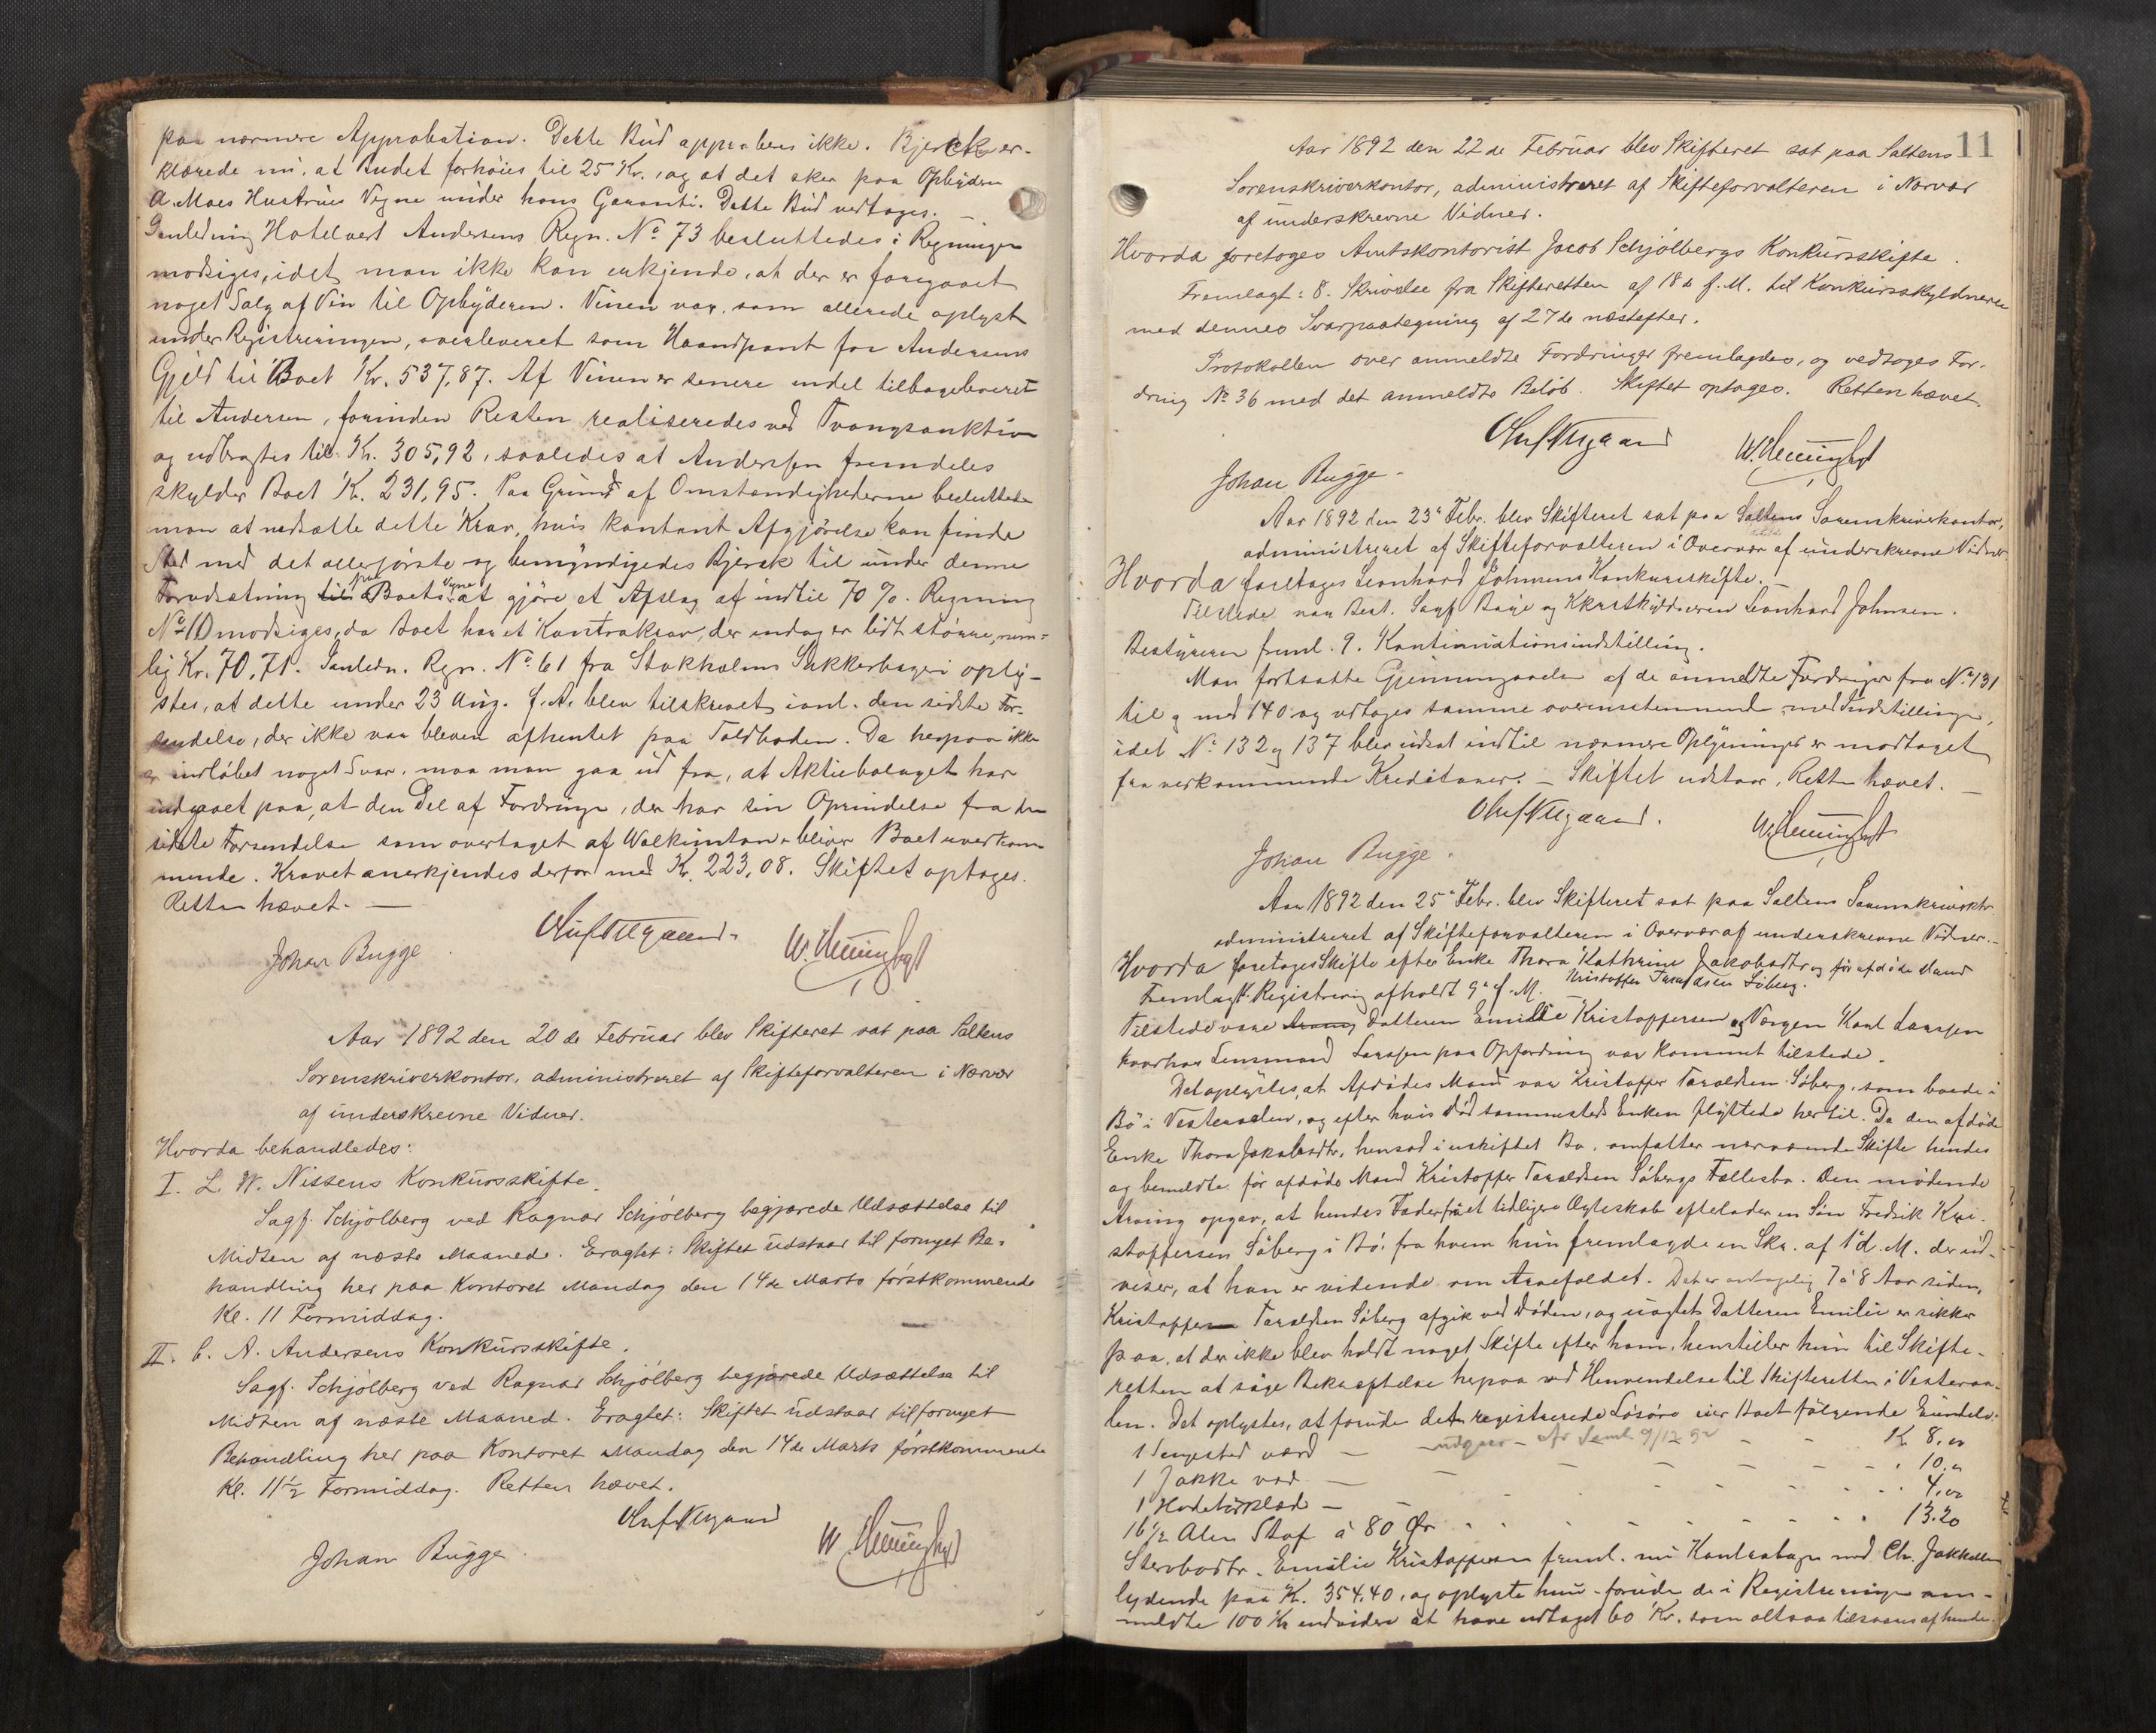 paa nærmere Approbation. Dette Bud approberes ikke. Bjerck er-
klærede nu, at Budet forhøies til 25 Kr., og at det sker paa Opbyderen
A. Moes Hustrues Vegne under hans Garanti. Dette Bud vedtages. —
I anledning Hotelvert Andersens Regn. No 73 besluttedes i Regningen
modsiges, idet man ikke kan erkjende, at der er foregaaet
noget Salg af Vin til Opbyderen. Vinen var, som allerede oplyst
under Registreringen, overleveret som Haandpant for Andersens
Gjeld til Boet Kr. 537,87. Af Vinen er senere endel tilbageleveret
til Andersen, forinden Resten realiseredes ved Tvangsauktion
og udbragtes til Kr. 305,92, saaledes at Andersen fremdeles
skylder Boet Kr. 231,95. Paa Grund af Omstændighederne besluttede
man at nedsætte dette Krav, hvis kontant Afgjørelse kan finde
Sted med det allerførste og bemyndigedes Bjerck til under denne
Forudsætning til paa Boets Vegne at gjøre et Afslag af indtil 70 %. Regning
No 10 modsiges, da Boet har et Kontrakrav, der endog er lidt større, nem-
lig Kr. 70,71. Ianledn. Regn. No 61 fra Stokholms Sukkerbageri oply-
stes, at dette under 23 Aug. f. A. blev tilskrevet ianl. den sidste For-
sendelse, der ikke var bleven afhentet paa Toldboden. Da herpaa ikke
er indløbet noget Svar, maa man gaa ud fra, at Aktiebolaget har
indgaaet paa, at den Del af Fordringen, der har sin Oprindelse fra den
sidste Forsendelse som overtaget af bliver Boet uvedkom-
mende. Kravet anerkjendes derfor med Kr. 223,08. Skiftet optages.
Retten hævet. —
Johan Bugge
Aar 1892 den 20de Februar blev Skifteret sat paa Saltens
Sorenskriverkontor, administreret af Skifteforvalteren i Nærvær
af underskrevne Vidner.
Hvorda behandledes:
I. L. W. Nissens Konkursskifte.
Sagf. Schjølberg ved Ragnar Schjølberg begjærede Udsættelse til
Midten af næste Maaned. Eragtet: Skiftet udstaar til fornyet Be-
handling her paa Kontoret Mandag den 14de Marts førstkommende
Kl. 11 Formiddag.
II. C. A. Andersens Konkursskifte.
Sagf. Schjølberg ved Ragnar Schjølberg begjærede Udsættelse til
Midten af næste Maaned. Eragtet: Skiftet udstaar til fornyet
Behandling her paa Kontoret Mandag den 14de Marts førstkommende
Kl. 11½ Formiddag. Retten hævet.
Johan Bugge
11
Aar 1892 den 22de Februar blev Skifteret sat paa Saltens
Sorenskriverkontor, administreret af Skifteforvalteren i Nærvær
af underskrevne Vidner.
Hvorda foretoges Amtskontorist Jacob Schjølbergs Konkursskifte.
Fremlagt: 8. Skrivelse fra Skifteretten af 18de f. M. til Konkursskyldneren
med dennes Svarpaategning af 27de næstefter.
Protokollen over anmeldte Fordringer fremlagdes, og vedtoges For-
dring No 36 med det anmeldte Beløb. Skiftet optages. Retten hævet.
Johan Bugge
Aar 1892 den 23de Febr. blev Skifteret sat paa Saltens Sorenskriverkontor,
administreret af Skifteforvalteren i Overvær af underskrevne Vidner.
Hvorda foretages Leonhard Johnsens Konkursskifte. —
Tilstede var Best. Sagf Bøje og Leonhard Johnsen.
Bestyreren freml. 9. Kontinuationsindstilling.
Man fortsatte Gjennemgaaelsen af de anmeldte Fordringer fra No 131
til og med 140 og vedtoges samme overensstemmende med Indstillingen,
idet No 132 og 137 blev udsat indtil nærmere Oplysninger er modtaget
fra vedkommende Kreditorer. — Skiftet udstaar, Retten hævet. —
Johan Bugge.
Aar 1892 den 25de Febr. blev Skifteret sat paa Saltens Sorenskriverktr
administreret af Skifteforvalteren i Overvær af underskrevne Vidner. —
Hvorda foretages Skifte efter Enke Thora Kathrine Jakobsdtr og før afdøde Mand
Kristoffer Taraldsen Søberg.
Fremlagt. Registrering afholdt 9de f. M.
Tilstede vare Arving Datteren Emilie Kristoffersen og Værgen Karl Larssen
hvorhos Lensmand Larssen paa Opfordring var kommet tilstede.
Det oplystes, at Afdødes Mand var Kristoffer Taraldsen Søberg, som boede i
Bø i Vesteraalen, og efter hvis Død sammesteds Enken flyttede hertil. Da den afdøde
Enke Thora Jakobsdtr. hensad i uskiftet Bo, omfatter nærværende Skifte hendes
og bemeldte før afdøde Mand Kristoffer Taraldsen Søbergs Fællesbo. Den mødende
Arving opgav, at hendes Fader fra et tidligere Ægteskab efterlader en Søn Fredrik Kri-
stoffersen Søberg i Bø, fra hvem hun fremlagde en Skr. af 1 d. M. der ud-
viser, at han er vidende om Arvefaldet. Det er antagelig 7 à 8 Aar siden,
Kristoffer Taraldsen Søberg afgik ved Døden, og uagtet Datteren Emilie er sikker
paa, at der ikke blev holdt noget Skifte efter ham, henstiller hun til Skifte-
retten at søge Bekræftelse herpaa ved Henvendelse til Skifteretten i Vesteraa-
len. Det oplystes, at foruden det registrerede Løsøre eier Boet følgende Eiendele:
1 Sengested værd — udgaar - Kr 8,00
1 Jakke værd — 10,00
1 Hodetørklæde — 4,00
16½ Alen Stof à 80 Øre 13.20
Stervbodtr. Emilie Kristoffersen freml. nu Kontrabog med Ch. Jakhelln
lydende paa Kr. 354,40, og oplyste hun foruden de i Registreringen an-
meldte 100 Kr endvidere at have udtaget 60 Kr. som altsaa af hende.